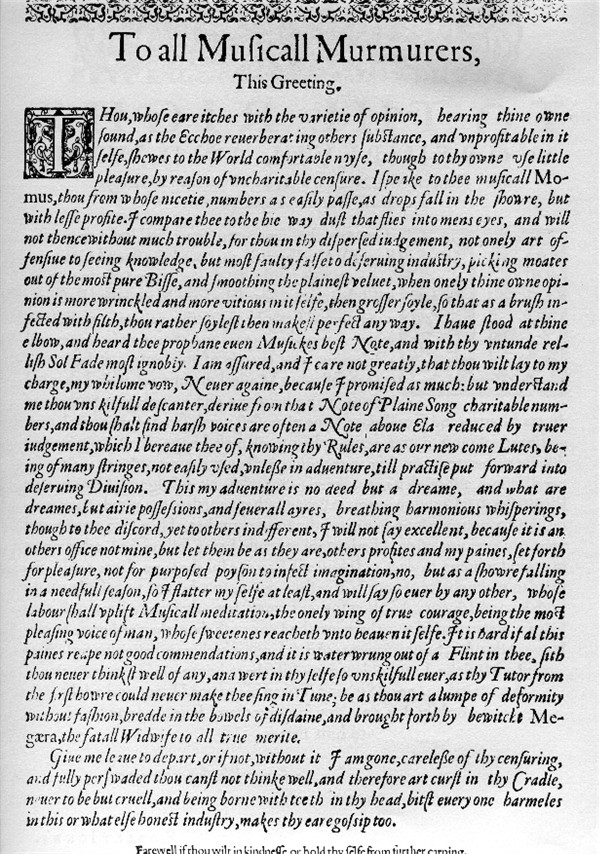 To all Muſicall Murmurers,
This Greeting.
THou, whoſe eare itches with the varietie of opinion, hearing thine owne
ſound, as the Ecchoe reuerberating others ſubſtance, and vnprofitable in it
ſelfe, ſhewes to the World comfortable noyſe, though to thy owne vſe little
pleaſure, by reaſon of vncharitable cenſure. I ſpeake to thee muſicall Mo-
mus, thou from whoſe nicetie, numbers as eaſily paſſe, as drops fall in the ſhowre, but
with leſſe profite. I compare thee to the hie way duſt that flies into mens eyes, and will
not thence without much trouble, for thou in thy diſperſed iudgement, not onely art of-
fenſiue to ſeeing knowledge, but moſt faulty falſe to deſeruing induſtry, picking moates
out of the moſt pure Biſſe, and ſmoothing the plaineſt veluet, when onely thine owne opi-
nion is more wrinckled and more vitious in it ſelfe, then groſſer ſoyle, ſo that as a bruſh in-
fected with filth, thou rather ſoyleſt then makeſt perfect any way. I haue ſtood at thine
elbow, and heard thee prophane euen Muſickes beſt Note, and with thy vntunde rel-
liſh Sol Fade moſt ignobly. I am aſſured, and I care not greatly, that thou wilt lay to my
charge, my whilome vow, Neuer againe, becauſe I promiſed as much: but vnderſtand
me thou vnskilfull deſcanter, deriue from that Note of Plaine Song charitable num-
bers, and thou ſhalt find harſh voices are often a Note aboue Ela reduced by truer
iudgement, which I bereaue thee of, knowing thy Rules, are as our new come Lutes, be-
ing of many ſtringes, not eaſily vſed, vnleſſe in aduenture, till practiſe put forward into
deſeruing Diuiſion. This my aduenture is no deed but a dreame, and what are
dreames, but airie poſſeſſions, and ſeuerall ayres, breathing harmonious whiſperings,
though to thee diſcord, yet to others indifferent, I will not ſay excellent, becauſe it is an
others office not mine, but let them be as they are, others profites and my paines, ſet forth
for pleaſure, not for purpoſed poyſon to infect imagination, no, but as a ſhowre falling
in a needfull ſeaſon, ſo I flatter my ſelfe at leaſt, and will ſay ſo euer by any other, whoſe
labour ſhall vplift Muſicall meditation, the onely wing of true courage, being the moſt
pleaſing voice of man, whoſe ſweetenes reacheth vnto heauen it ſelfe. It is hard if al this
paines reape not good commendations, and it is water wrung out of a Flint in thee, ſith
thou neuer thinkſt well of any, and wert in thy ſelfe ſo vnskilfull euer, as thy Tutor from
the firſt howre could neuer make thee ſing in Tune, be as thou art a lumpe of deformity
without faſhion, bredde in the bowels of diſdaine, and brought forth by bewitcht Me-
gæra, the fatall Widwife to all true merite.
Giue me leaue to depart, or if not, without it I am gone, careleſſe of thy cenſuring,
and fully perſwaded thou canſt not thinke well, and therefore art curſt in thy Cradle,
neuer to be but cruell, and being borne with teeth in thy head, bitſt euery one harmeles
in this or what elſe honeſt induſtry, makes thy eare goſſip too.
Farewell if thou wilt in kindneſſe, or hold thy ſelfe from further carping.